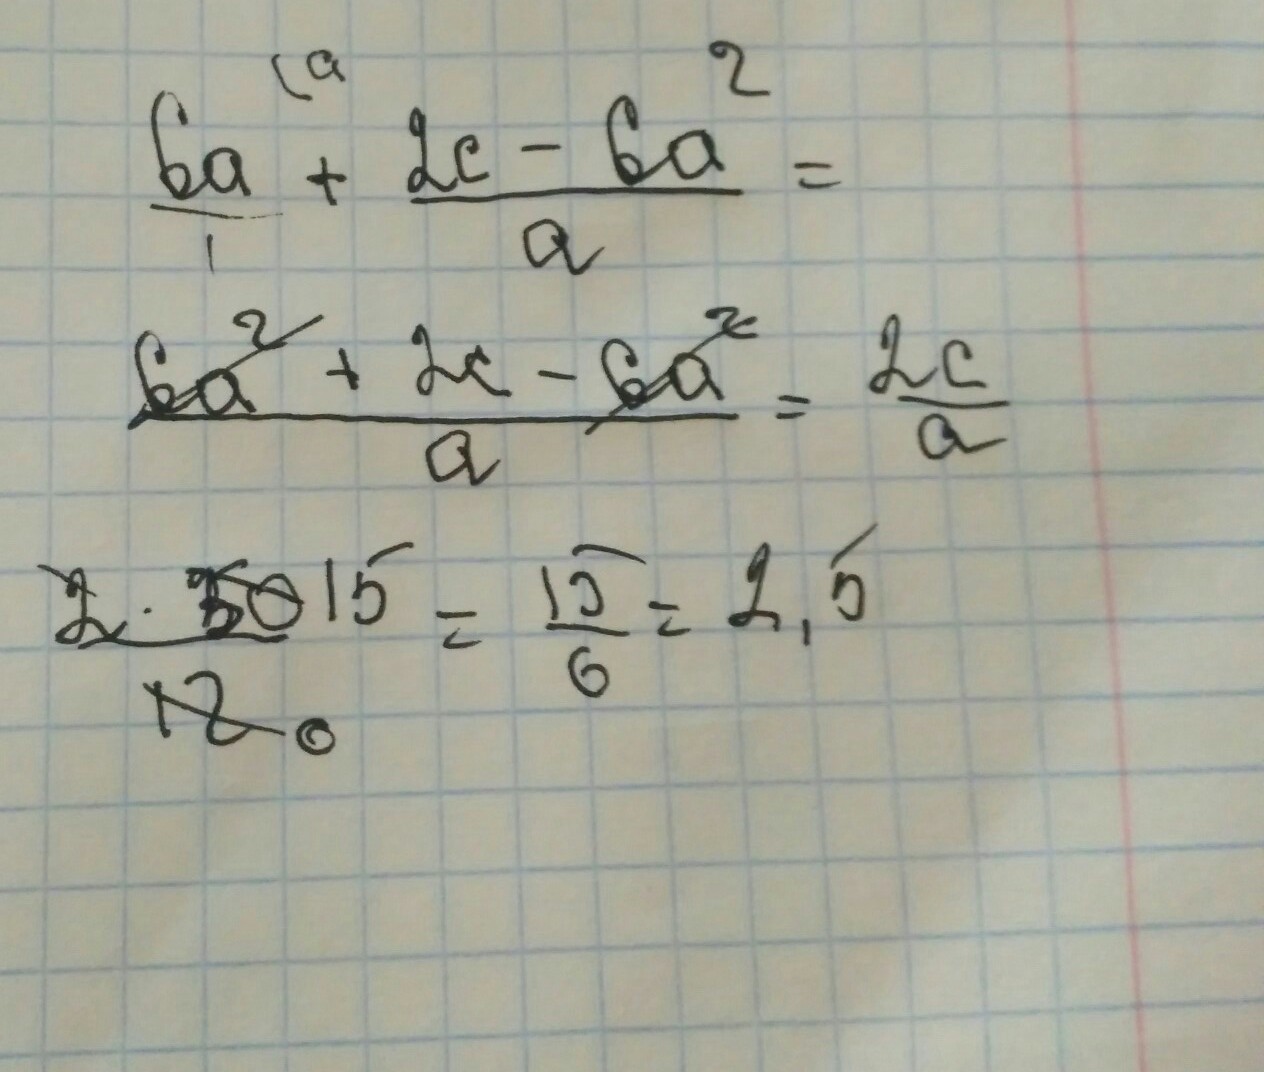 6a/1 (a + (2c - 6a²)/a =
(6a² + 2c - 6a²)/a = 2c/a
2 · 30 15/12 6 = 15/6 = 2,5